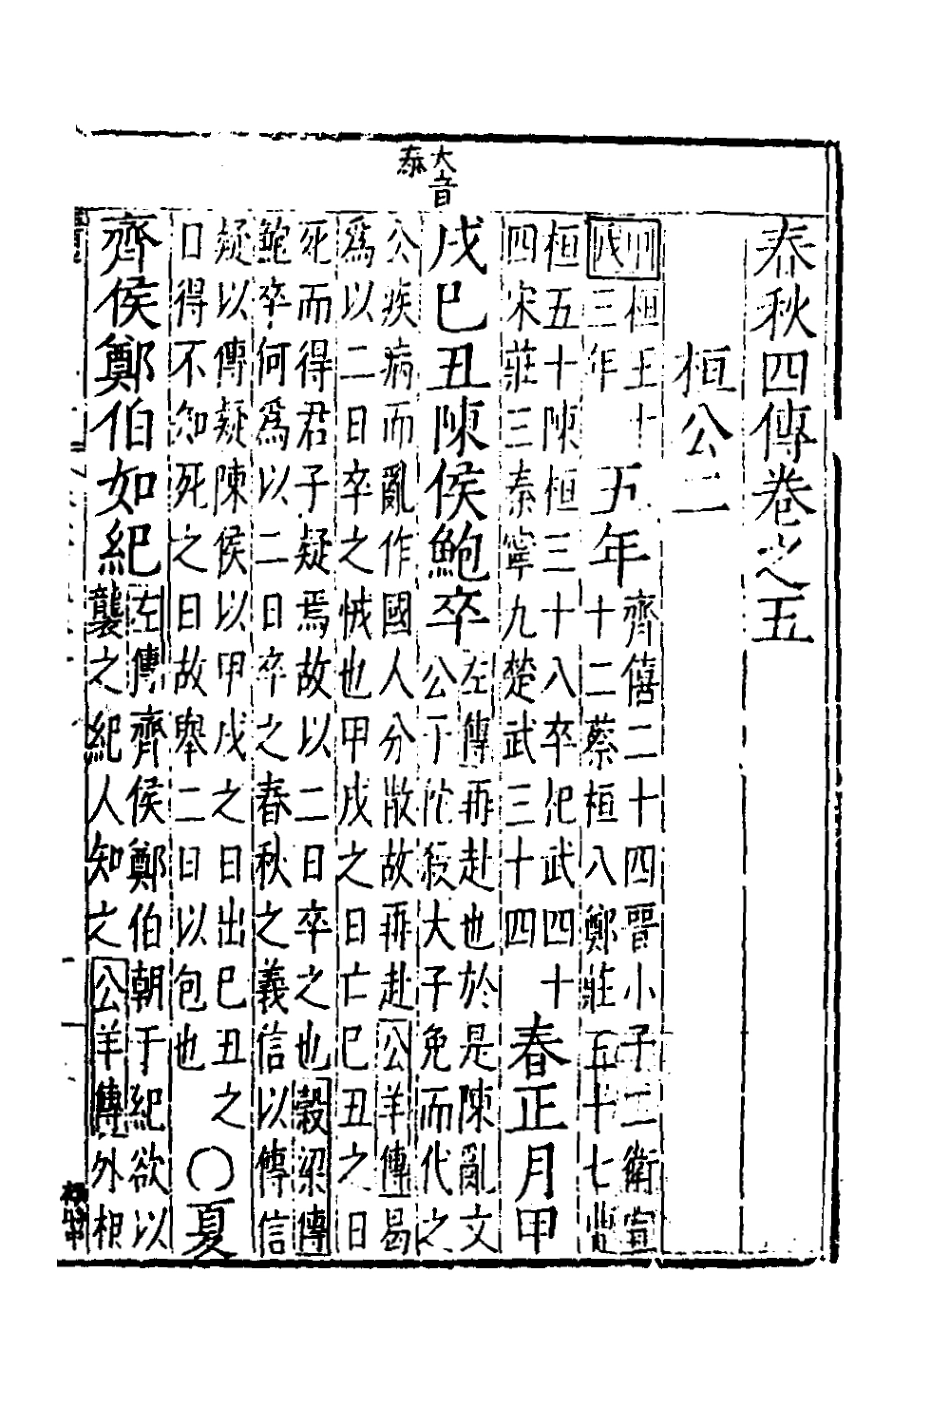 大音
泰
春秋四傳卷之五
桓公二
甲戌
桓王十
三年
五年
齊僖二十四晉小子二衛宣
十二蔡桓八鄭莊五十七曹
桓五十陳桓三十八卒杞武四十
四宋莊三秦寧九楚武三十四
春正月甲
戌己丑陳侯鮑卒
左傳再赴也於是陳亂文
公子佗殺大子免而代之
公疾病而亂作國人分散故再赴公羊傳曷
爲以二日卒之怴也甲戌之日亡己丑之日
死而得君子疑焉故以二日卒之也穀梁傳
鮑卒何爲以二日卒之春秋之義信以傳信
疑以傳疑陳侯以甲戌之日出己丑之
日得不知死之日故舉二日以包也
○夏
齊侯鄭伯如紀
左傳齊侯鄭伯朝于紀欲以
襲之紀人知之公羊傳外相